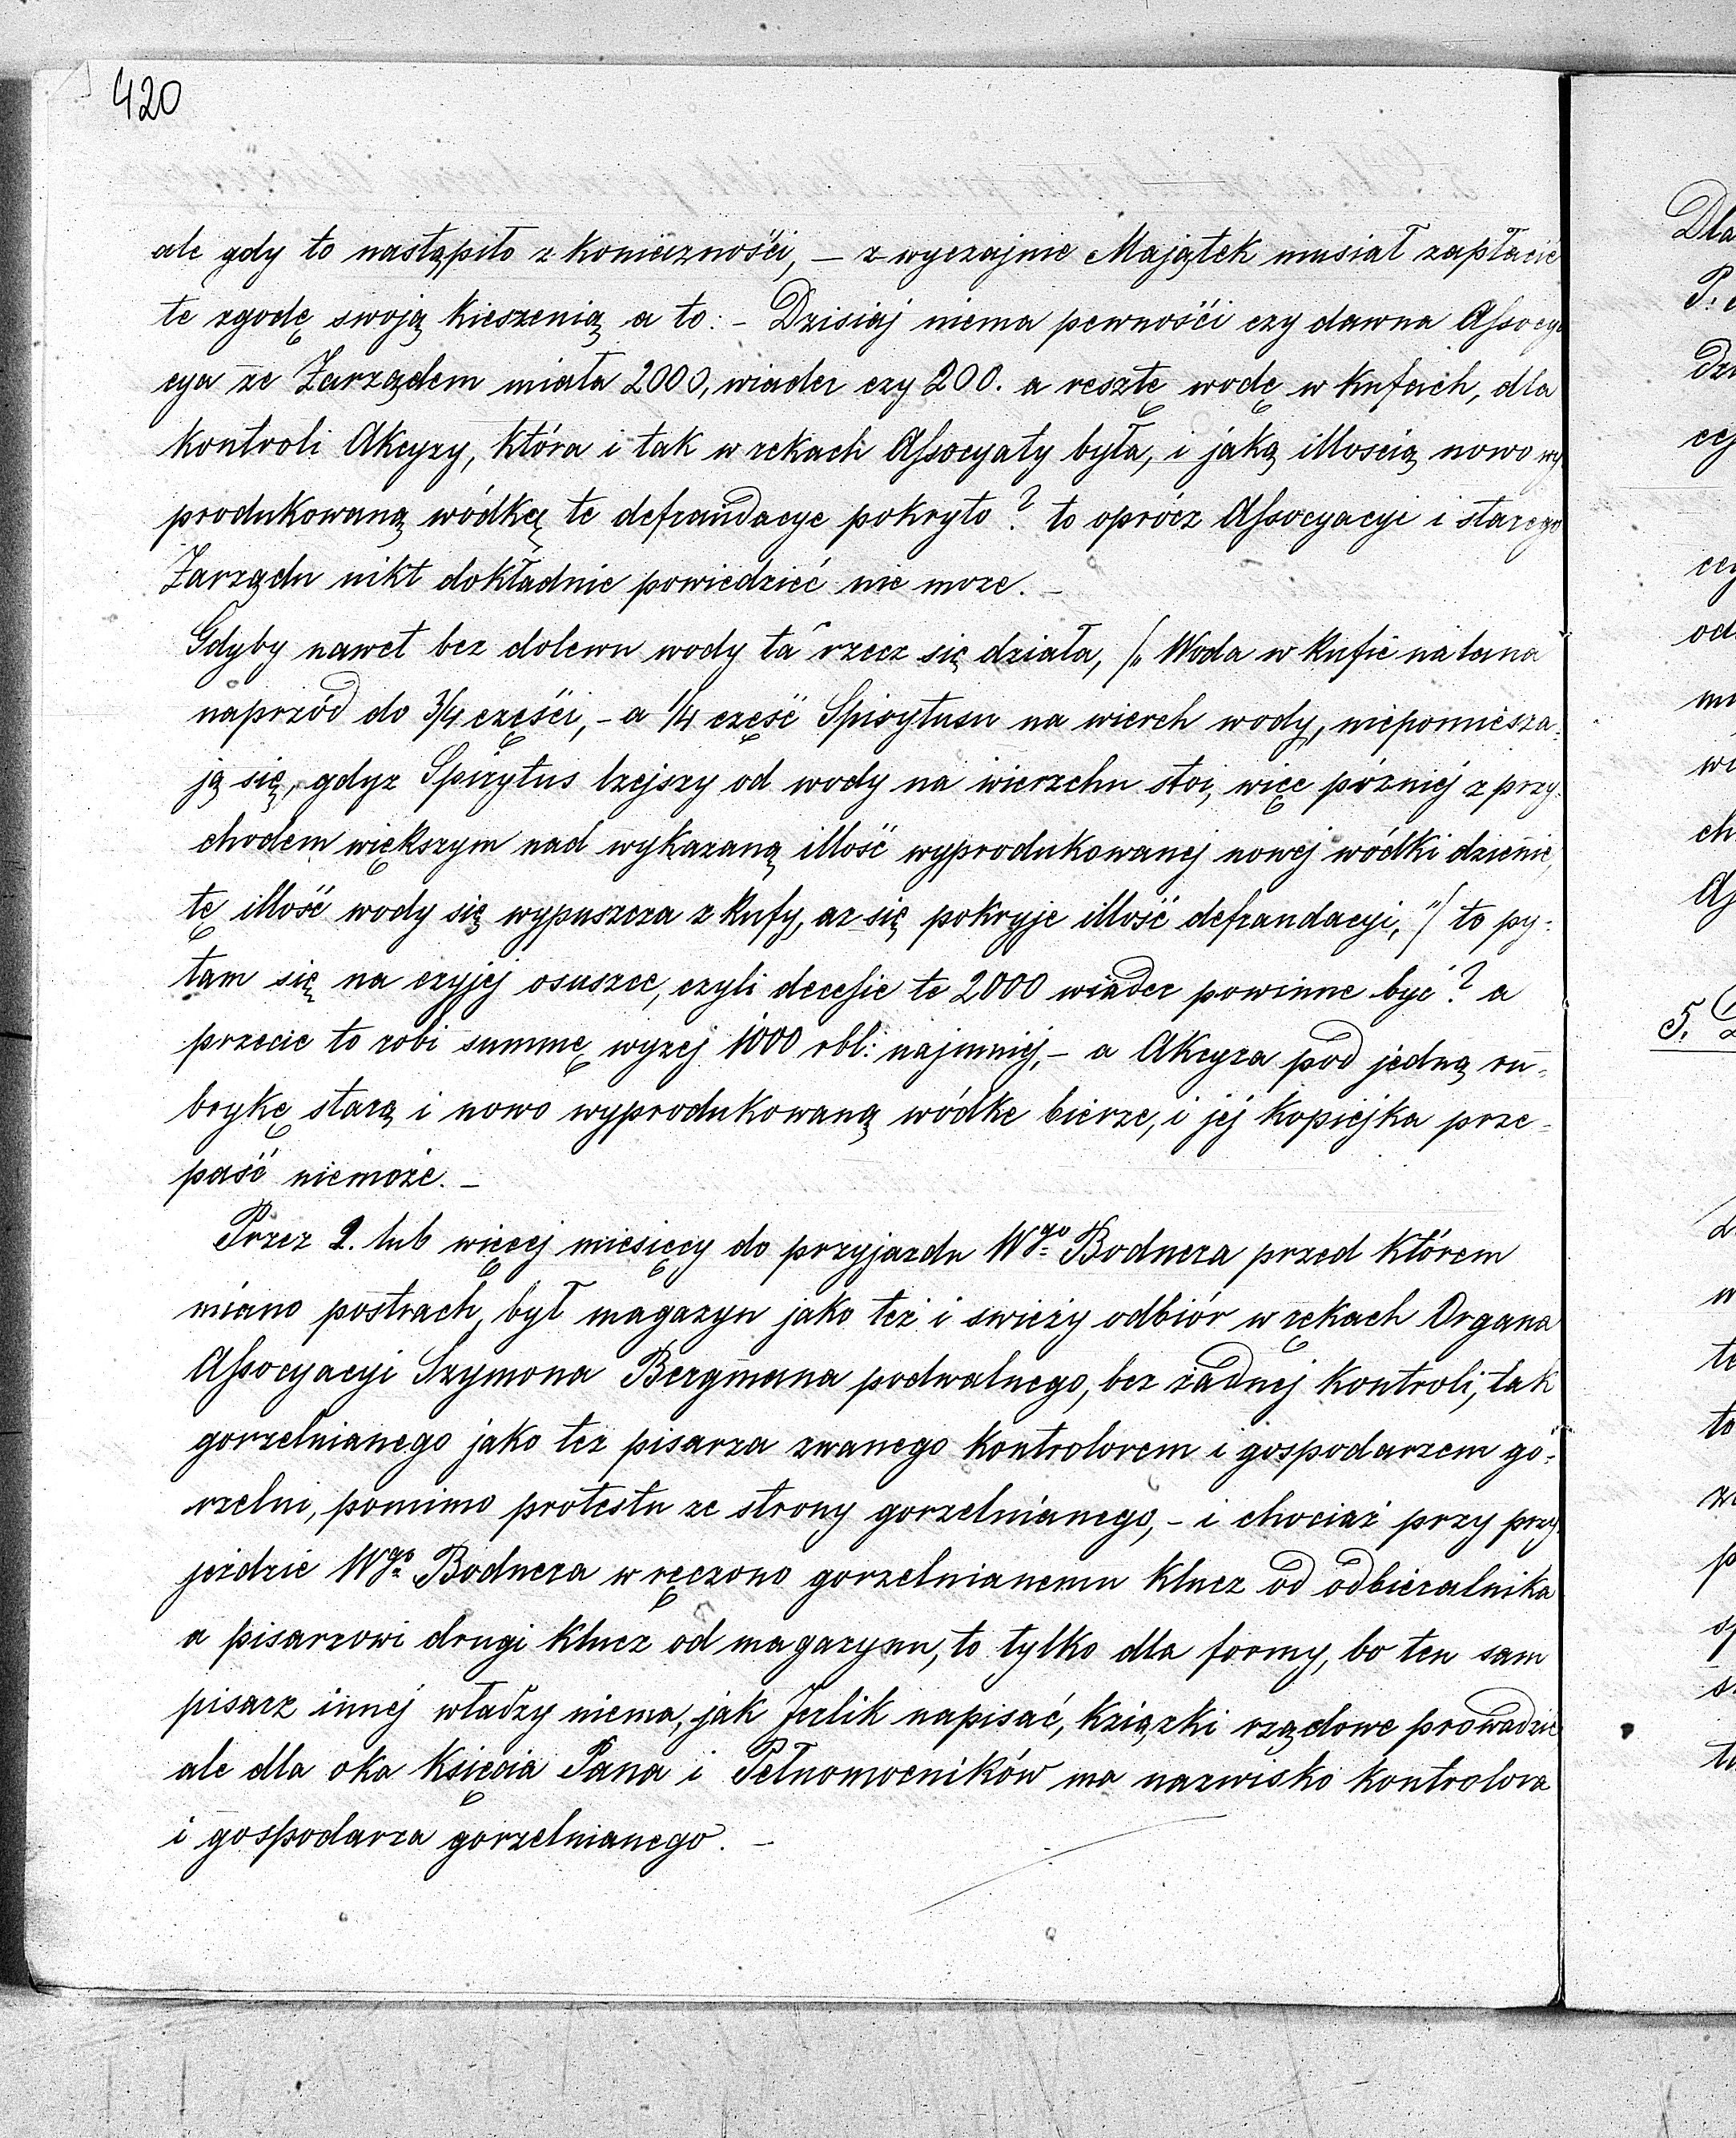 420
ale gdy to nastąpiło z koniecznośći, – z wyczajnie Majątek musiał zapłacić
te zgodę swoją kieszenią a to: – Dzisiaj niema pewnośći czy dawna Assocya
cya ze Zarządem miała 2000, wiader czy 200. a resztę wodę w kufach, dla
kontroli Akcyzy, która i tak w rekach Assocyaty była, i jaką illoscią nowo wy
produkowaną wódką te defraudacye pokryto? to oprócz Assocyacyi i starego
Zarządu nikt dokładnie powiedzieć nie moze. –
Gdyby nawet bez dolewu wody ta rzecz się działa, /„ Woda w kufie nalana
naprzód do 3/4 częśći, – a 1/4 część Spirytusu na wierch wody, niepomiesza-
ją się, gdyz Spirytus lzejszy od wody na wierzchu stoi, więc pózniej z przy-
chodem większym nad wykazaną illość wyprodukowanej nowej wódki dzienie,
tę illość wody się wypuszcza z kufy, az się pokryje illość defraudacyi, "/ to py-
tam się na czyjej osuszce, czyli decesie te 2000 wiader powinne być? a
przecie to robi summę wyzej 1000 rbl: najmniej, – a Akcyza pod jedną ru-
brykę starą i nowo wyprodukowaną wódke bierze, i jej kopiejka prze-
paść niemoże. –
Przez 2. lub więcej miesięcy do przyjazdu Wgo Bodnera przed którem
miano postrach, był magazyn jako też i swieży odbiór w rękach Organa
Assocyacyi Szymona Bergmana podwalnego, bez żadnej kontroli, tak
gorzelnianego jako tez pisarza zwanego kontrolorem i gospodarzem go-
rzelni, pomimo protestu ze strony gorzelnianego, – i chociaż przy przy
jeżdzie Wgo Bodnera w ręczono gorzelnianemu klucz od odbieralnika
a pisarzowi drugi klucz od magazynu, to tylko dla formy, bo ten sam
pisarz innej władzy niema, jak Jerlik napisać, książki rządowe prowadzić
ale dla oka Księcia Pana i Pełnomocników ma nazwisko kontrolora
i gospodarza gorzelnianego. –
5.